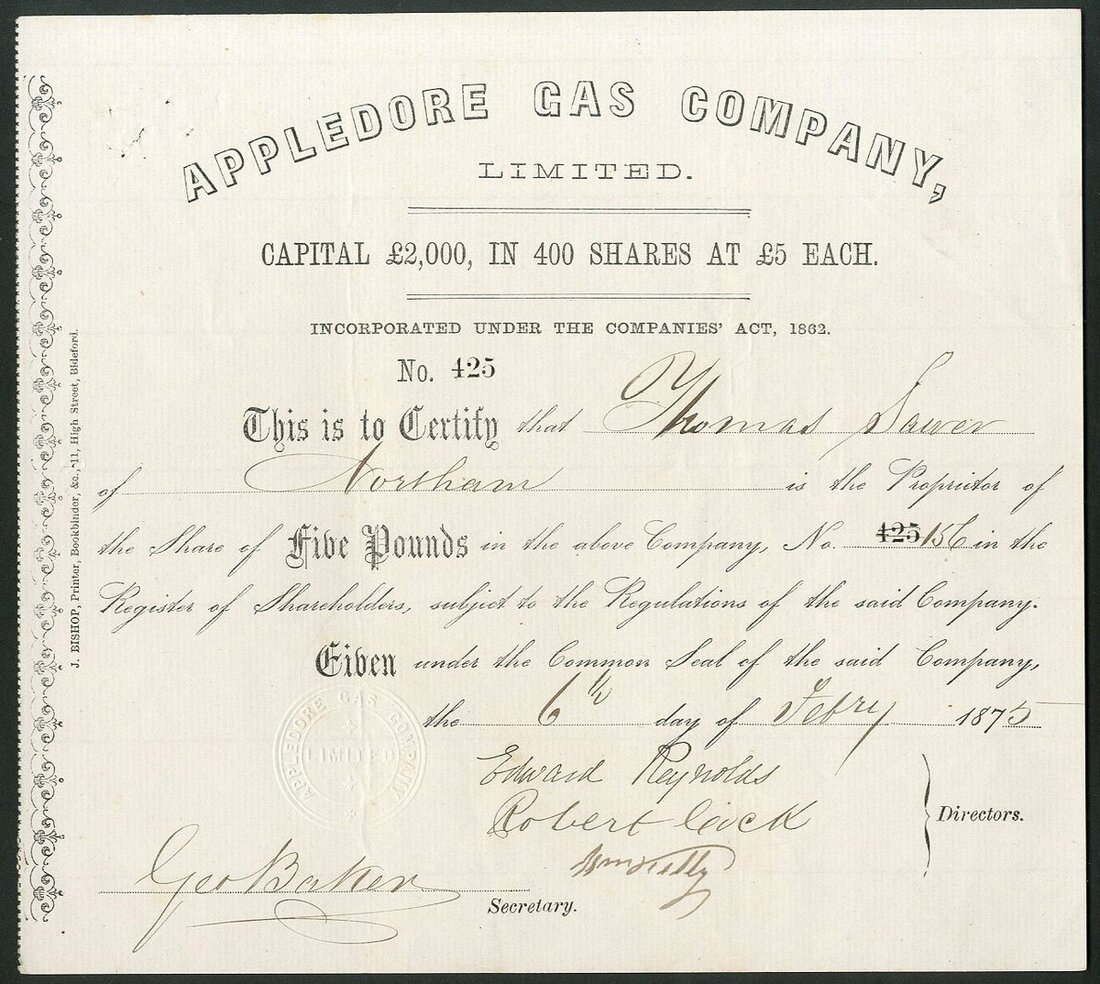 APPLEDORE GAS COMPANY,
LIMITED.
CAPITAL £2,000, IN 400 SHARES AT £5 EACH.
INCORPORATED UNDER THE COMPANIES' ACT, 1862.
No. 425
This is to Certify that Thomas Sawer
of Northam is the Proprietor of
the Share of Five Pounds in the above Company, No. 425 156 in the
Register of Shareholders, subject to the Regulations of the said Company.
Given under the Common Seal of the said Company,
the 6th day of Febry 1875
APPLEDORE GAS COMPANY
LIMITED
Edward Reynolds
Robert Cock
Directors.
Geo Baker
Secretary.
J. BISHOP, Printer, Bookbinder, &c., 11, High Street, Bideford.